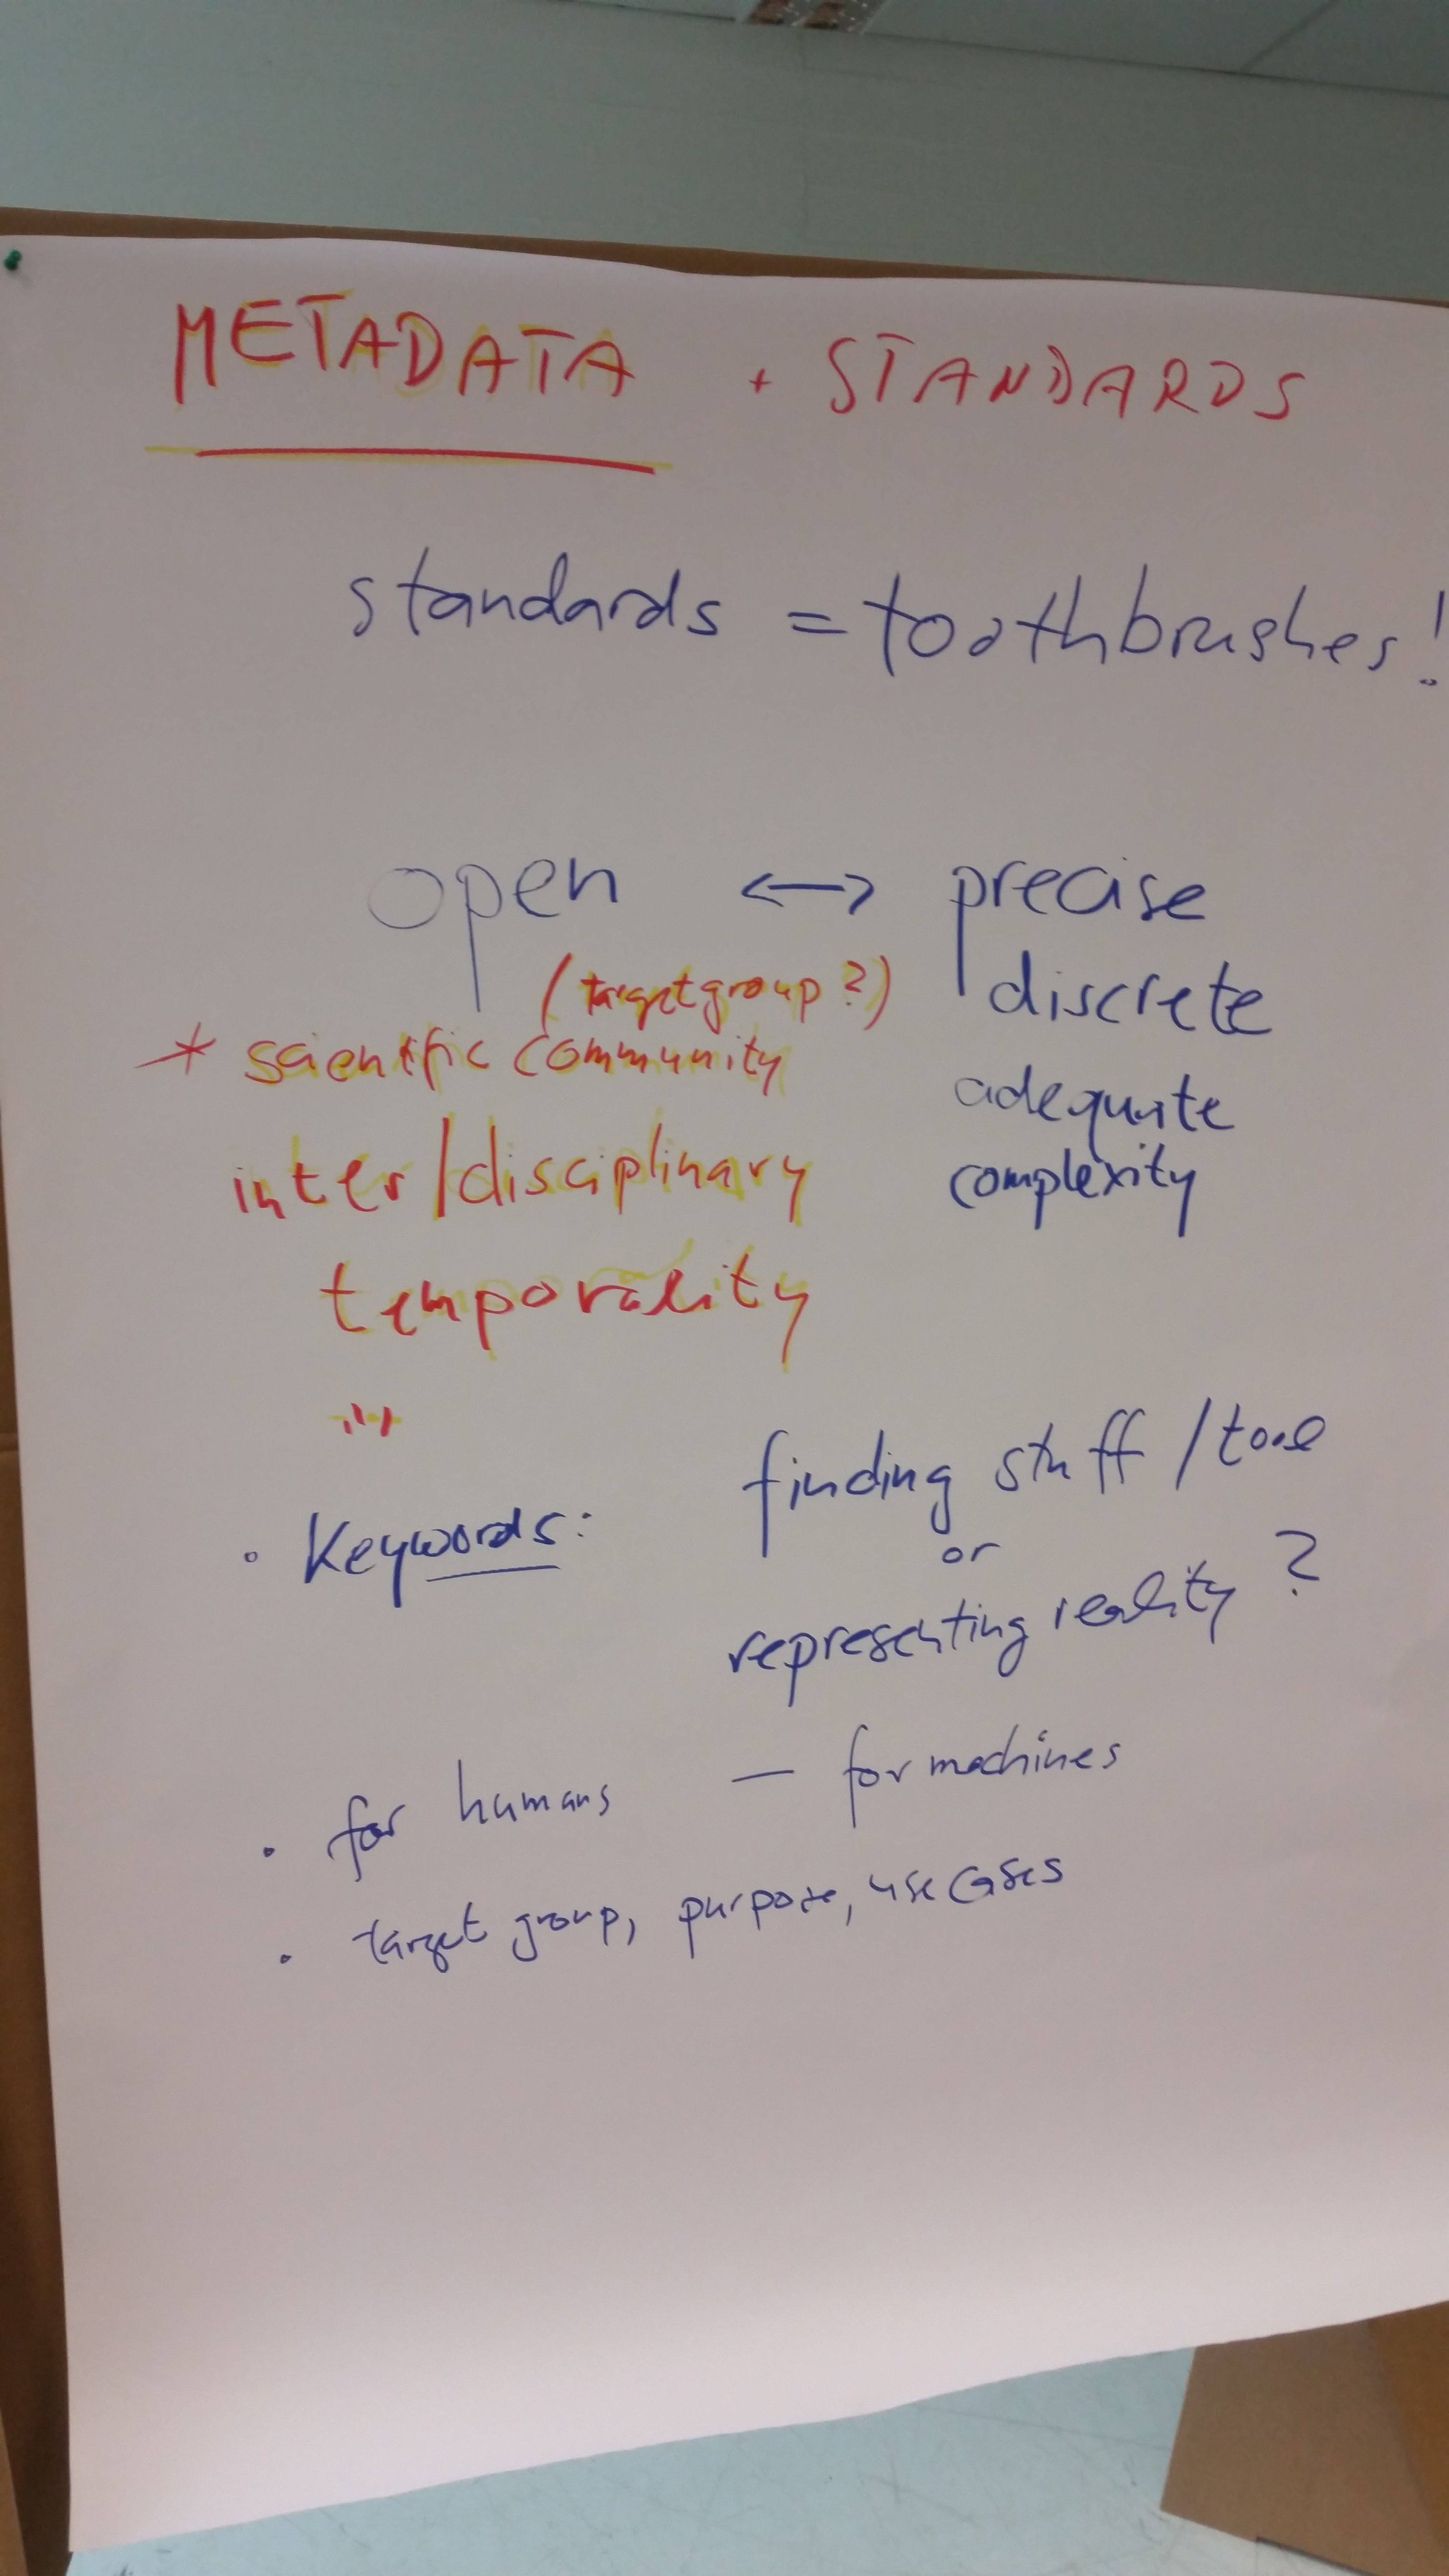 METADATA + STANDARDS
standards = toothbrushes!
open <-> precise
(targetgroup?) discrete
* scientific community
adequate
inter/disciplinary complexity
temporality
...
finding stuff / tool
• Keywords: or
representing reality?
• for humans — for machines
• target group, purpose, use cases